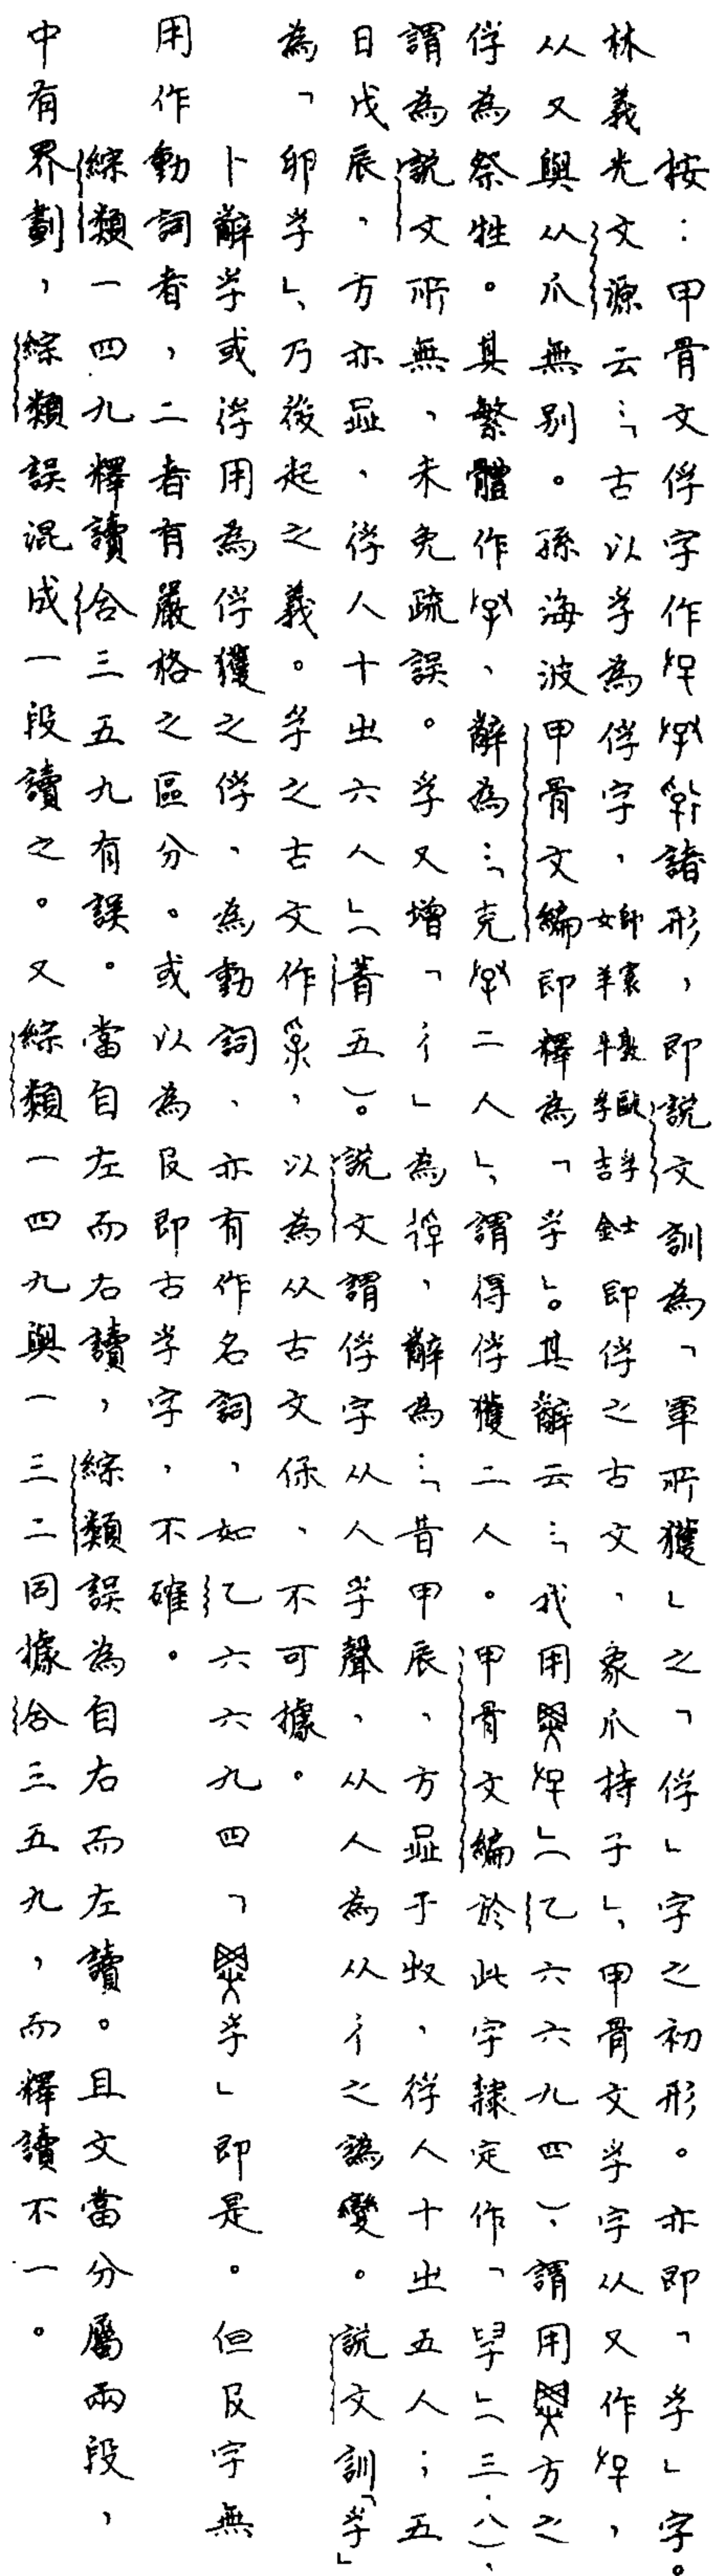 按：甲骨文俘字作諸形，即說文訓為「軍所獲」之「俘」字之初形。亦即「孚」字。
林義光文源云：「古以孚為俘字，師㝨𣪘敺孚士女羊牛孚吉金即俘之古文，象爪持子」，甲骨文孚字从又作，
从又與从爪無別。孫海波甲骨文編即釋為「孚」。其辭云：「我用」（乙六六九四）、謂用方之
俘為祭牲。其繁體作、辭為：「克二人」，謂得俘獲二人。甲骨文編於此字隸定作「」（三·八）、
謂為說文所無，未免疏誤。孚又增「彳」為，辭為：「昔甲辰，方䟒于𡿧，俘人十㞢五人；五
日戊辰，方亦䟒，俘人十㞢六人」（菁五）。說文謂俘字从人孚聲，从人為从彳之譌變。說文訓「孚」
為「卵孚」，乃後起之義。孚之古文作，以為从古文保，不可據。
卜辭孚或俘用為俘獲之俘，為動詞，亦有作名詞，如乙六六九四「孚」即是。但𠬝字無
用作動詞者，二者有嚴格之區分。或以為𠬝即古孚字，不確。
綜類一四九釋讀合三五九有誤。當自左而右讀，綜類誤為自右而左讀。且文當分屬兩段，
中有界劃，綜類誤混成一段讀之。又綜類一四九與一三二同據合三五九，而釋讀不一。